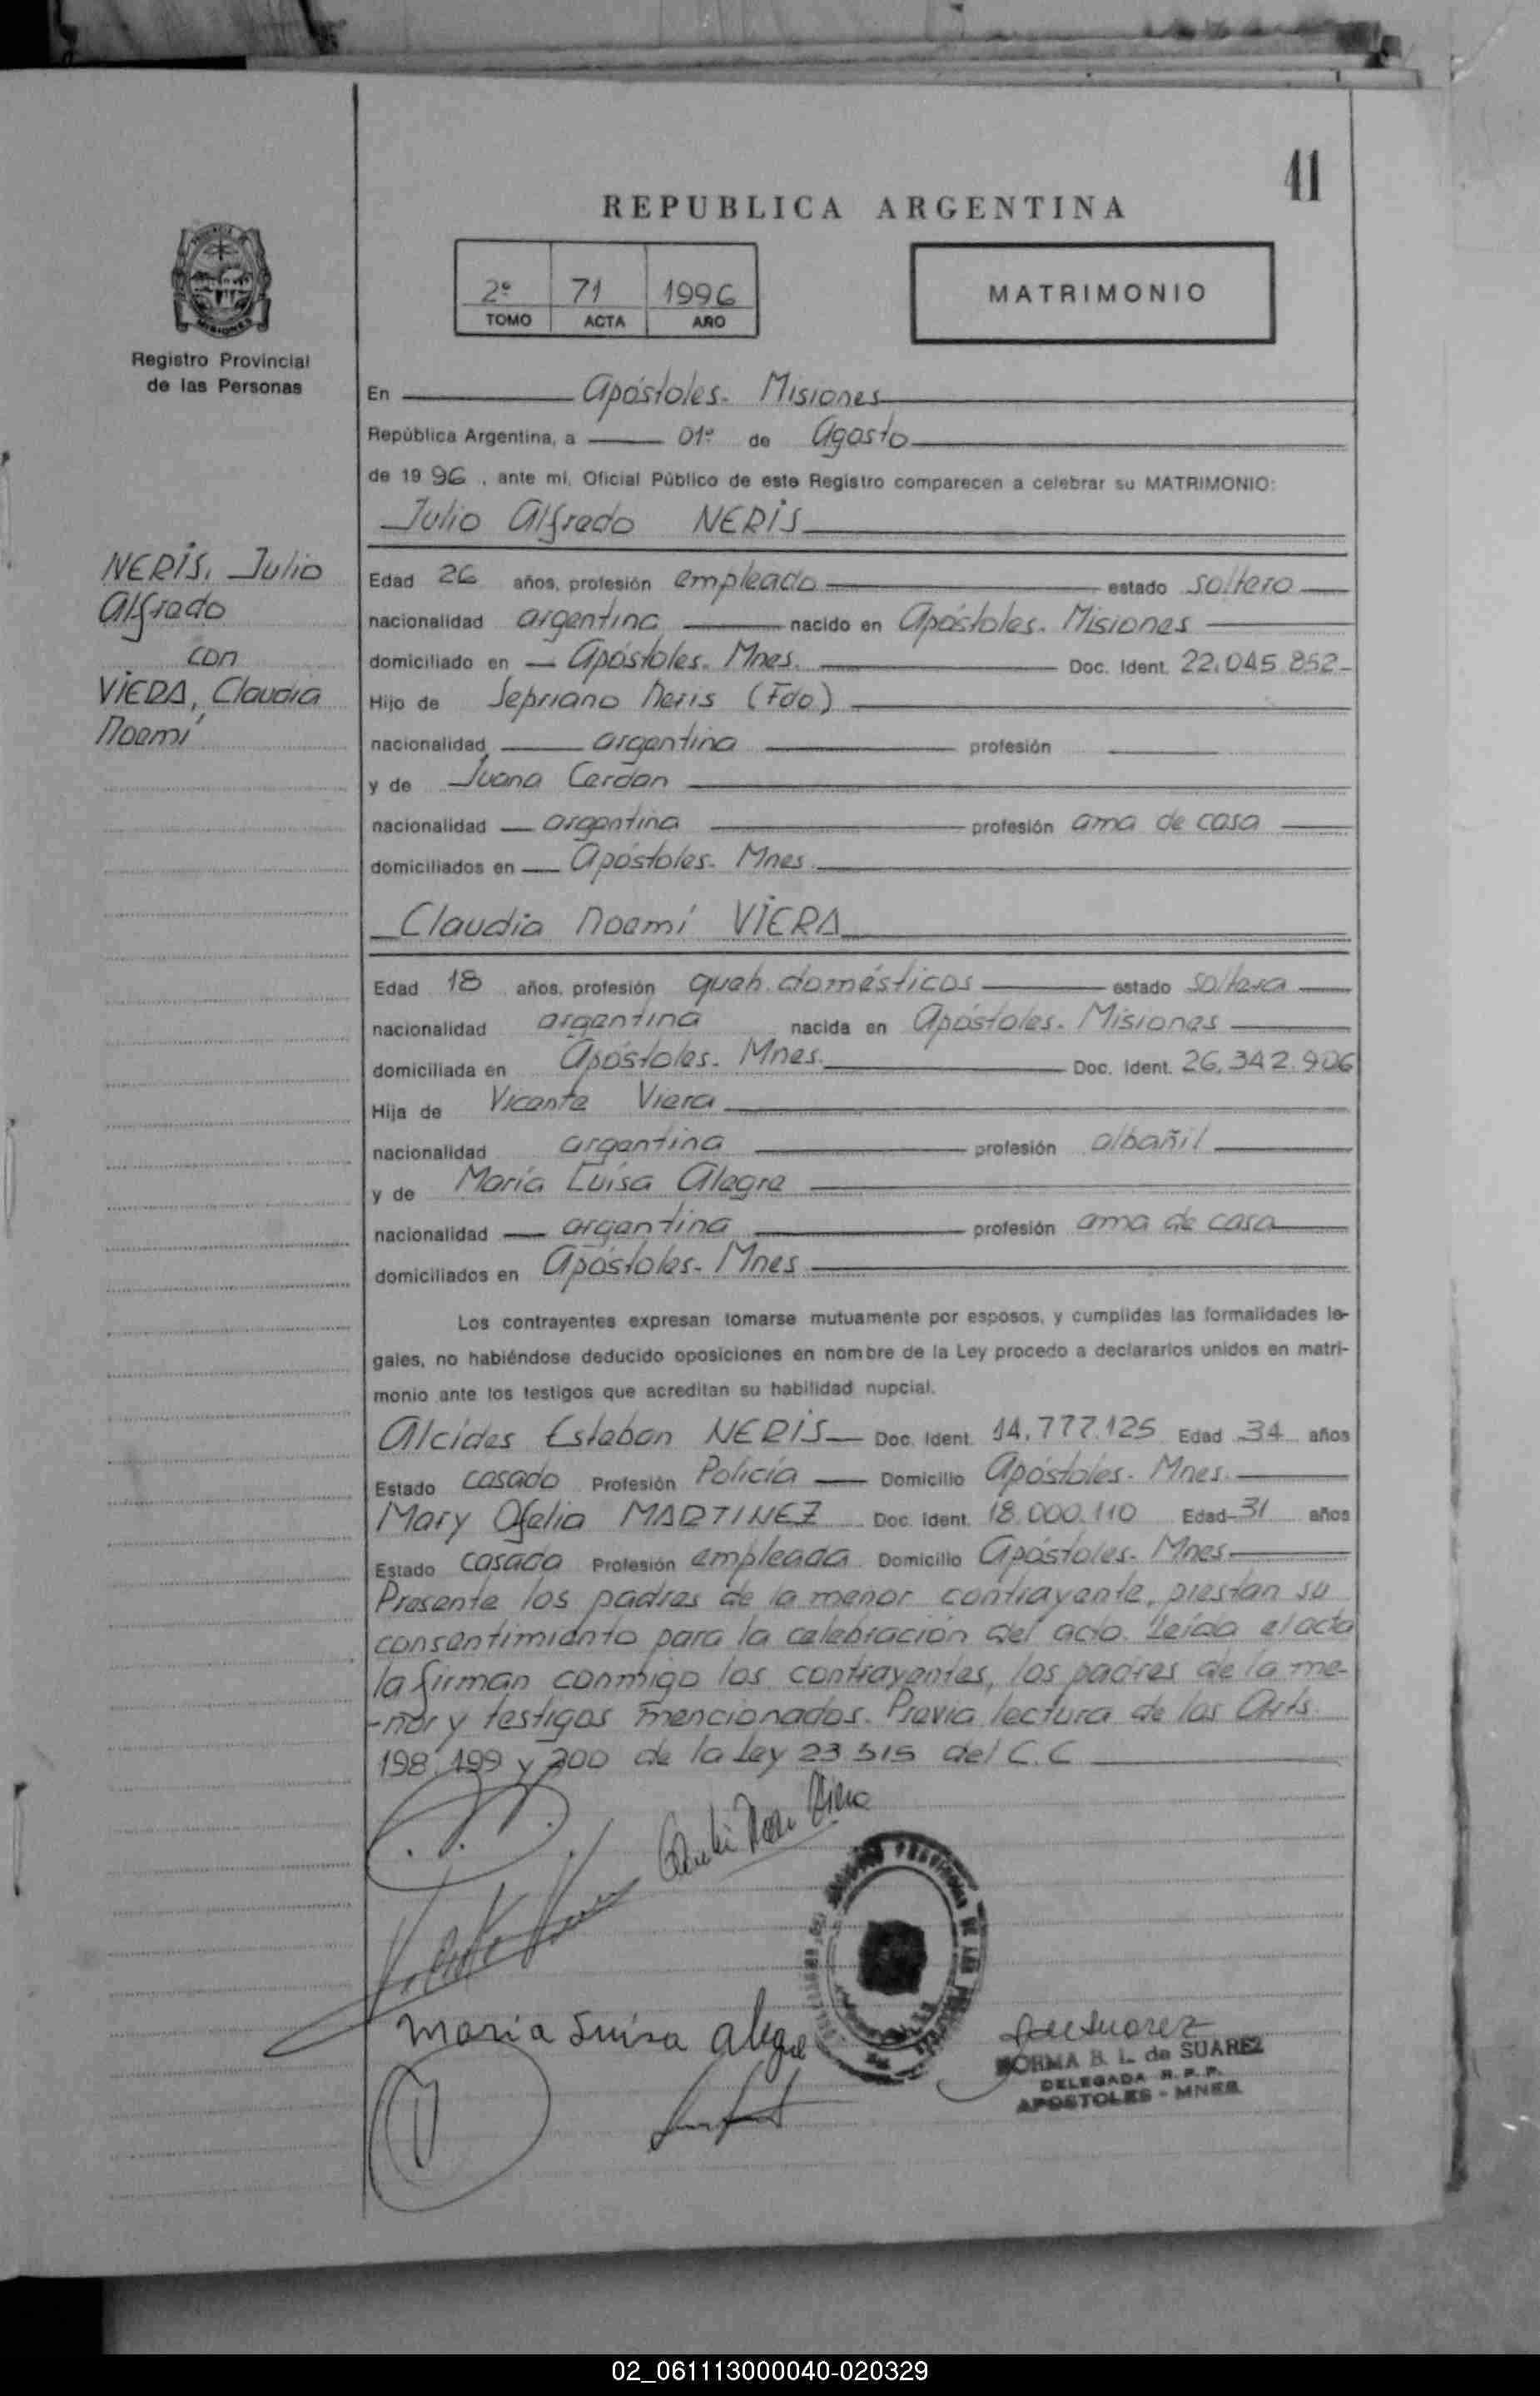 41
REPUBLICA ARGENTINA
2º 71 1996
TOMO ACTA AÑO
MATRIMONIO
MISIONES
Registro Provincial
de las Personas
En Apóstoles. Misiones
República Argentina, a 01º de Agosto
de 1996, ante mi, Oficial Público de este Registro comparecen a celebrar su MATRIMONIO:
Julio Alfredo NERIS
NERIS, Julio
Alfredo
con
VIERA, Claudia
Noemí
Edad 26 años, profesión empleado estado soltero
nacionalidad argentina nacido en Apóstoles. Misiones
domiciliado en Apóstoles. Mnes. Doc. Ident. 22.045.852
Hijo de Sepriano Neris (Fdo)
nacionalidad argentina profesión
y de Juana Cerdan
nacionalidad argentina profesión ama de casa
domiciliados en Apóstoles. Mnes.
Claudia Noemí VIERA
Edad 18 años, profesión queh. domésticos estado soltera
nacionalidad argentina nacida en Apóstoles. Misiones
domiciliada en Apóstoles. Mnes. Doc. Ident. 26.342.906
Hija de Vicente Viera
nacionalidad argentina profesión albañil
y de María Luisa Alegre
nacionalidad argentina profesión ama de casa
domiciliados en Apóstoles. Mnes
Los contrayentes expresan tomarse mutuamente por esposos, y cumplidas las formalidades le-
gales, no habiéndose deducido oposiciones en nombre de la Ley procedo a declararlos unidos en matri-
monio ante los testigos que acreditan su habilidad nupcial.
Alcides Esteban NERIS Doc. Ident. 14.777.125 Edad 34 años
Estado casado Profesión Policía Domicilio Apóstoles. Mnes.
Mary Ofelia MARTINEZ Doc. Ident. 18.000.110 Edad 31 años
Estado casada Profesión empleada Domicilio Apóstoles. Mnes
Presente los padres de la menor contrayente, prestan su
consentimiento para la celebración del acto. Leída el acta
la firman conmigo los contrayentes, los padres de la me-
-nor y testigos mencionados. Previa lectura de los Arts.
198, 199 y 200 de la Ley 23.515 del C.C
Viera
Maria Luisa Alegre
Suarez
NORMA B. L. de SUAREZ
DELEGADA R. P. P.
APOSTOLES - MNES.
02_061113000040-020329